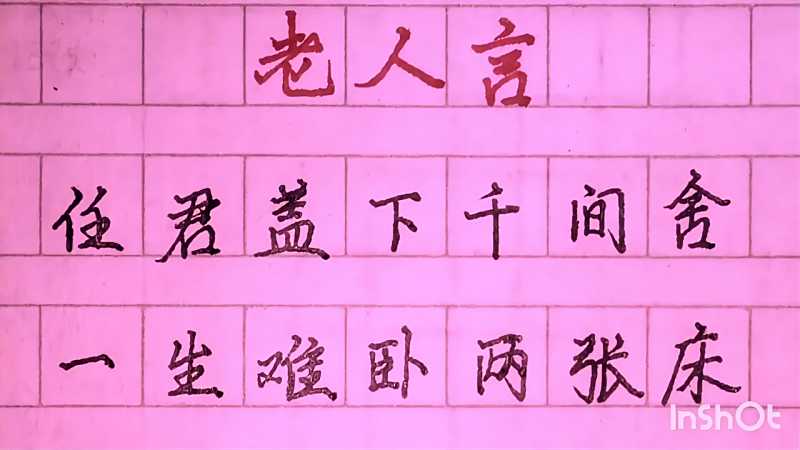 老人言
任君盖下千间舍
一生难卧两张床
InShOt